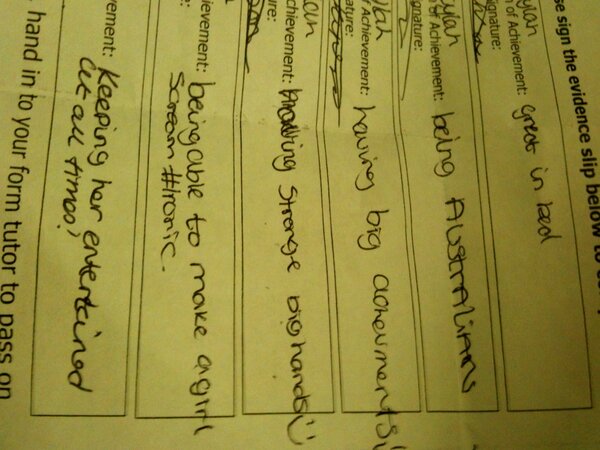 se sign the evidence slip below to
n of Achievement: great in bed
Signature:
of Achievement: being Australians
ignature:
Achievement: having big acheuments
ature:
Achievement: having Strange big hands
hievement: being able to make a girl
Scream #Ironic.
vement: Keeping her entertained
at all times!
hand in to your form tutor to pass on